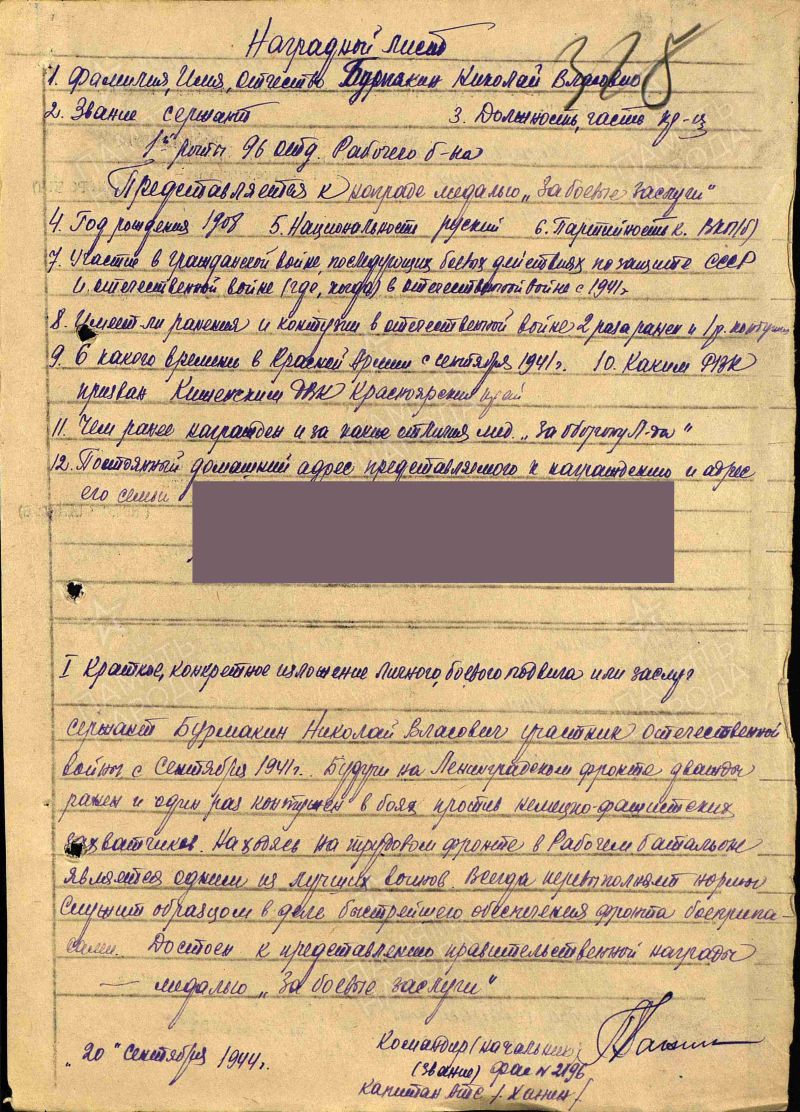 Наградной лист
328
1. Фамилия, Имя, Отчество Бурмакин Николай Власович
2. Звание сержант 3. Должность, часть кр-ц
1й роты 96 отд. Рабочего б-на
Представляется к награде медалью „За боевые заслуги"
4. Год рождения 1908 5. Национальность руский 6. Партийность к. ВКП(б)
7. Участие в гражданской войне, последующих боевых действиях по защите СССР
и отечественной войне (где, когда) в отечественной войне с 1941г
8. Имеет ли ранения и контузии в отечественной войне 2 раза ранен и 1 р.
9. С какого времени в Красной Армии с сентября 1941г. 10. Каким РВК
призван РВК Красноярский край
11. Чем ранее награжден и за какие отличия мед. „За оборону Л-да"
12. Постоянный домашний адрес представляемого к награждению и адрес
его семьи
ПАМЯТЬ НАРОДА
I Краткое, конкретное изложение личного, боевого подвига или заслуг
сержант Бурмакин Николай Власович участник отечественной
войны с Сентября 1941г. Будучи на Ленинградском фронте дважды
ранен и один раз контужен в боях против немецко-фашистских
захватчиков. Находясь на трудовом фронте в Рабочем батальоне
является одним из лучших воинов. Всегда перевыполняет нормы
служит образцом в деле быстрейшего обеспечения фронта боеприпа-
сами. Достоен к представлению правительственной награды
— медалью „За боевые заслуги"
„20" сентября 1944г.
Командир (начальник)
(звание) ФАС N 2196
капитан /Ханин/